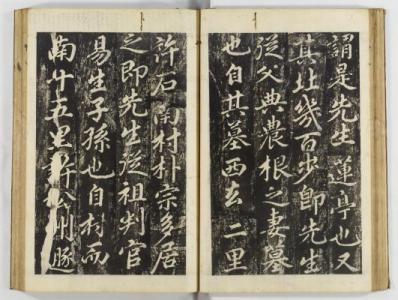 謂是先生蓮亭也又
其北幾百步卽先生
從父典農根之妻墓
也自其墓西去二里
許石南村朴宗多居
之即先生從祖判官
易生子孫也自村而
南廾五里許公州豚